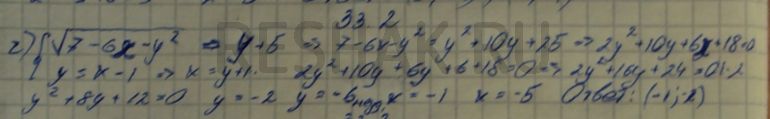 33.2
г) { √7-6x-y² = y+5 => 7-6x-y² = y²+10y+25 => 2y²+10y+6x+18=0
y = x-1 => x = y+1. 2y²+10y+6y+6+18=0 => 2y²+16y+24=0 |:2
y²+8y+12=0 y=-2 y=-6 x=-1 x=-5 Ответ: (-1;-2)